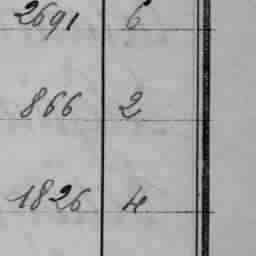 2691 6
866 2
1826 4